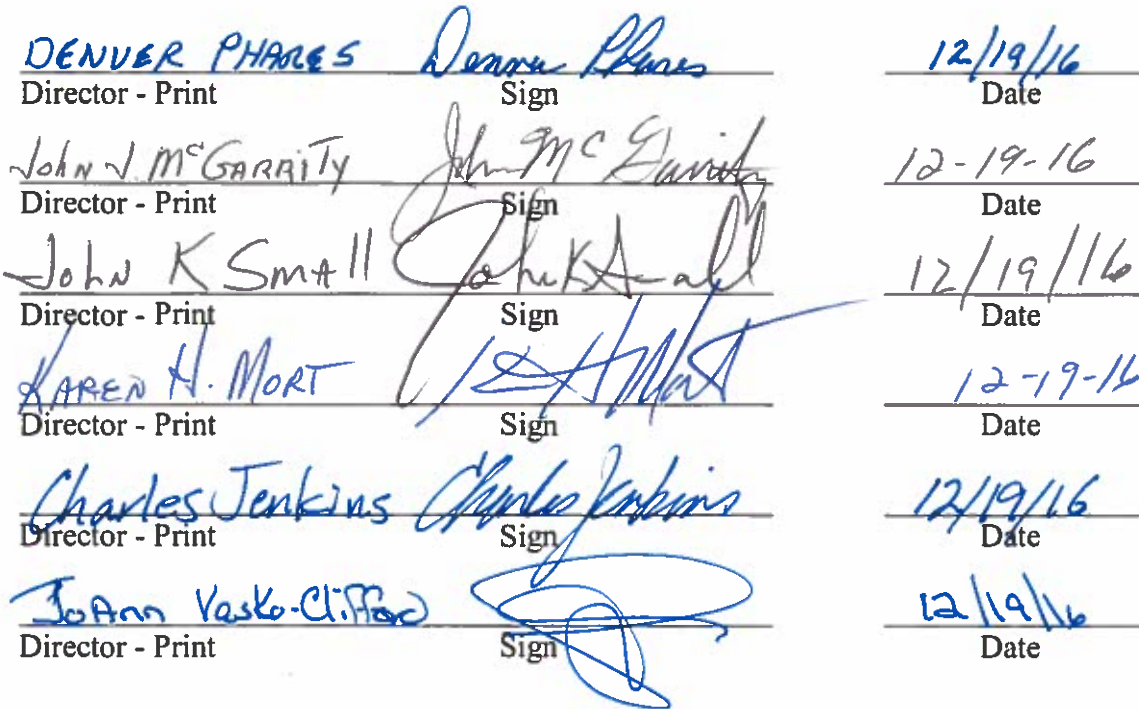 DENVER PHARES Denver Phares 12/19/16
Director - Print Sign Date
John J McGARRITY John McGarrity 12-19-16
Director - Print Sign Date
John K Small John K Small 12/19/16
Director - Print Sign Date
KAREN H. MORT K H Mort 12-19-16
Director - Print Sign Date
Charles Jenkins Charles Jenkins 12/19/16
Director - Print Sign Date
JoAnn Vasko-Clifford 12/19/16
Director - Print Sign Date